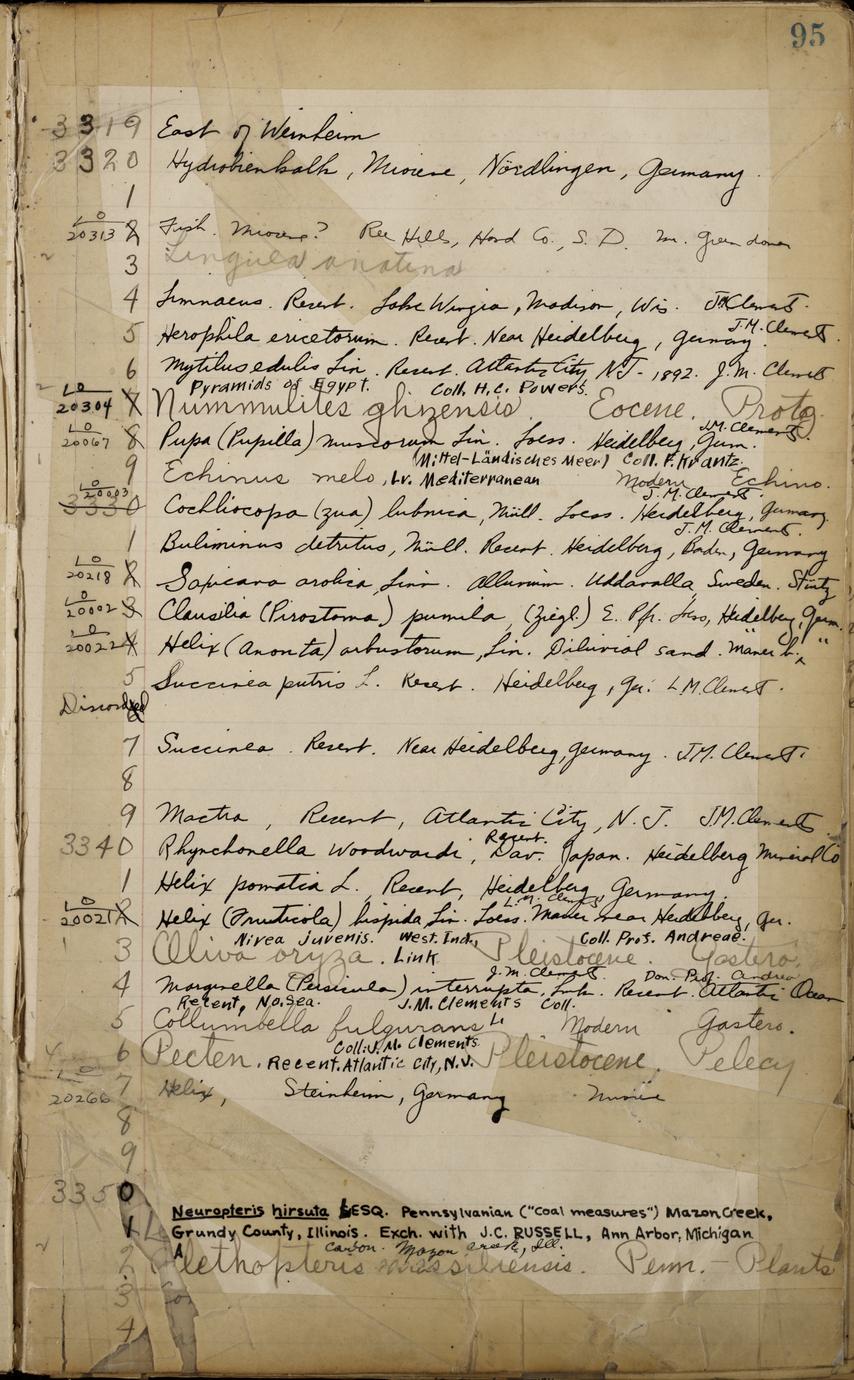 95
3319 East of Weinheim
3320 Hydrobienkalk, Miocene, Nördlingen, Germany.
1
LO 20313 2 Fish. Miocene? Ree Hills, Hand Co., S. D. Mr. Green donor
3 Lingula anatina
4 Limnaeus. Recent. Lake Wingra, Madison, Wis. J.M. Clements.
5 Herophila ericetorum. Recent. Near Heidelberg, Germany. J.M. Clements.
6 Mytilus edulis Lin. Recent. Atlantic City NJ - 1892. J.M. Clements
Pyramids of Egypt. Coll. H.C. Powers.
LO 20304 7 Nummulites ghyzensis. Eocene. Proto
LO 20067 8 Pupa (Pupilla) muscorum Lin. Loess. Heidelberg, Germ. J.M. Clements.
(Mittel-Ländisches Meer) Coll. P. Krantz.
9 Echinus melo, Lr. Mediterranean Modern Echino.
LO 20003 3330 Cochliocopa (zua) lubrica, Müll. Loess. Heidelberg, Germany. J.M. Clements.
1 Buliminus detritus, Müll. Recent. Heidelberg, Baden, Germany J.M. Clements.
LO 20218 2 Saxicava arctica, Linn. Alluvium. Uddavalla, Sweden. Stürtz
LO 20002 3 Clausilia (Pirostoma) pumila, (Ziegl.) E. Pfr. Loess, Heidelberg, Germ.
LO 20022 4 Helix (Arionta) arbustorum, Lin. Diluvial sand. Mauer b. "
5 Succinea putris L. Recent. Heidelberg, Ger. L.M. Clements.
Discarded 6
7 Succinea. Recent. Near Heidelberg, Germany. J.M. Clements.
8
9 Mactra, Recent, Atlantic City, N.J. J.M. Clements
3340 Rhynchonella Woodwardi, Dav. Recent. Japan. Heidelberg Mineral Co
1 Helix pomatia L. Recent, Heidelberg, Germany.
LO 20021 2 Helix (Fruticola) hispida Lin. Loess. Mauer near Heidelberg, Ger. L.M. Clements
Nivea juvenis. West. Ind. Coll. Prof. Andreae.
3 Oliva oryza. Link Pleistocene. Gastero.
J.M. Clements. Don. Prof. Andrea
4 Marginella (Persicula) interrupta, Lmk. Recent. Atlantic Ocean
Recent, No. Sea. J.M. Clements Coll.
5 Collumbella fulgurans L. Modern Gastero.
Coll: J.M. Clements
6 Pecten. Recent. Atlantic City, N.J. Pleistocene. Pelecy
LO 20266 7 Helix, Steinheim, Germany
8
9
3350
Neuropteris hirsuta LESQ. Pennsylvanian ("Coal measures") Mazon Creek,
1 Grundy County, Illinois. Exch. with J.C. RUSSELL, Ann Arbor, Michigan
Carbon. Mazon Creek, Ill.
2 Alethopteris massiliensis. Penn. - Plants
3
4